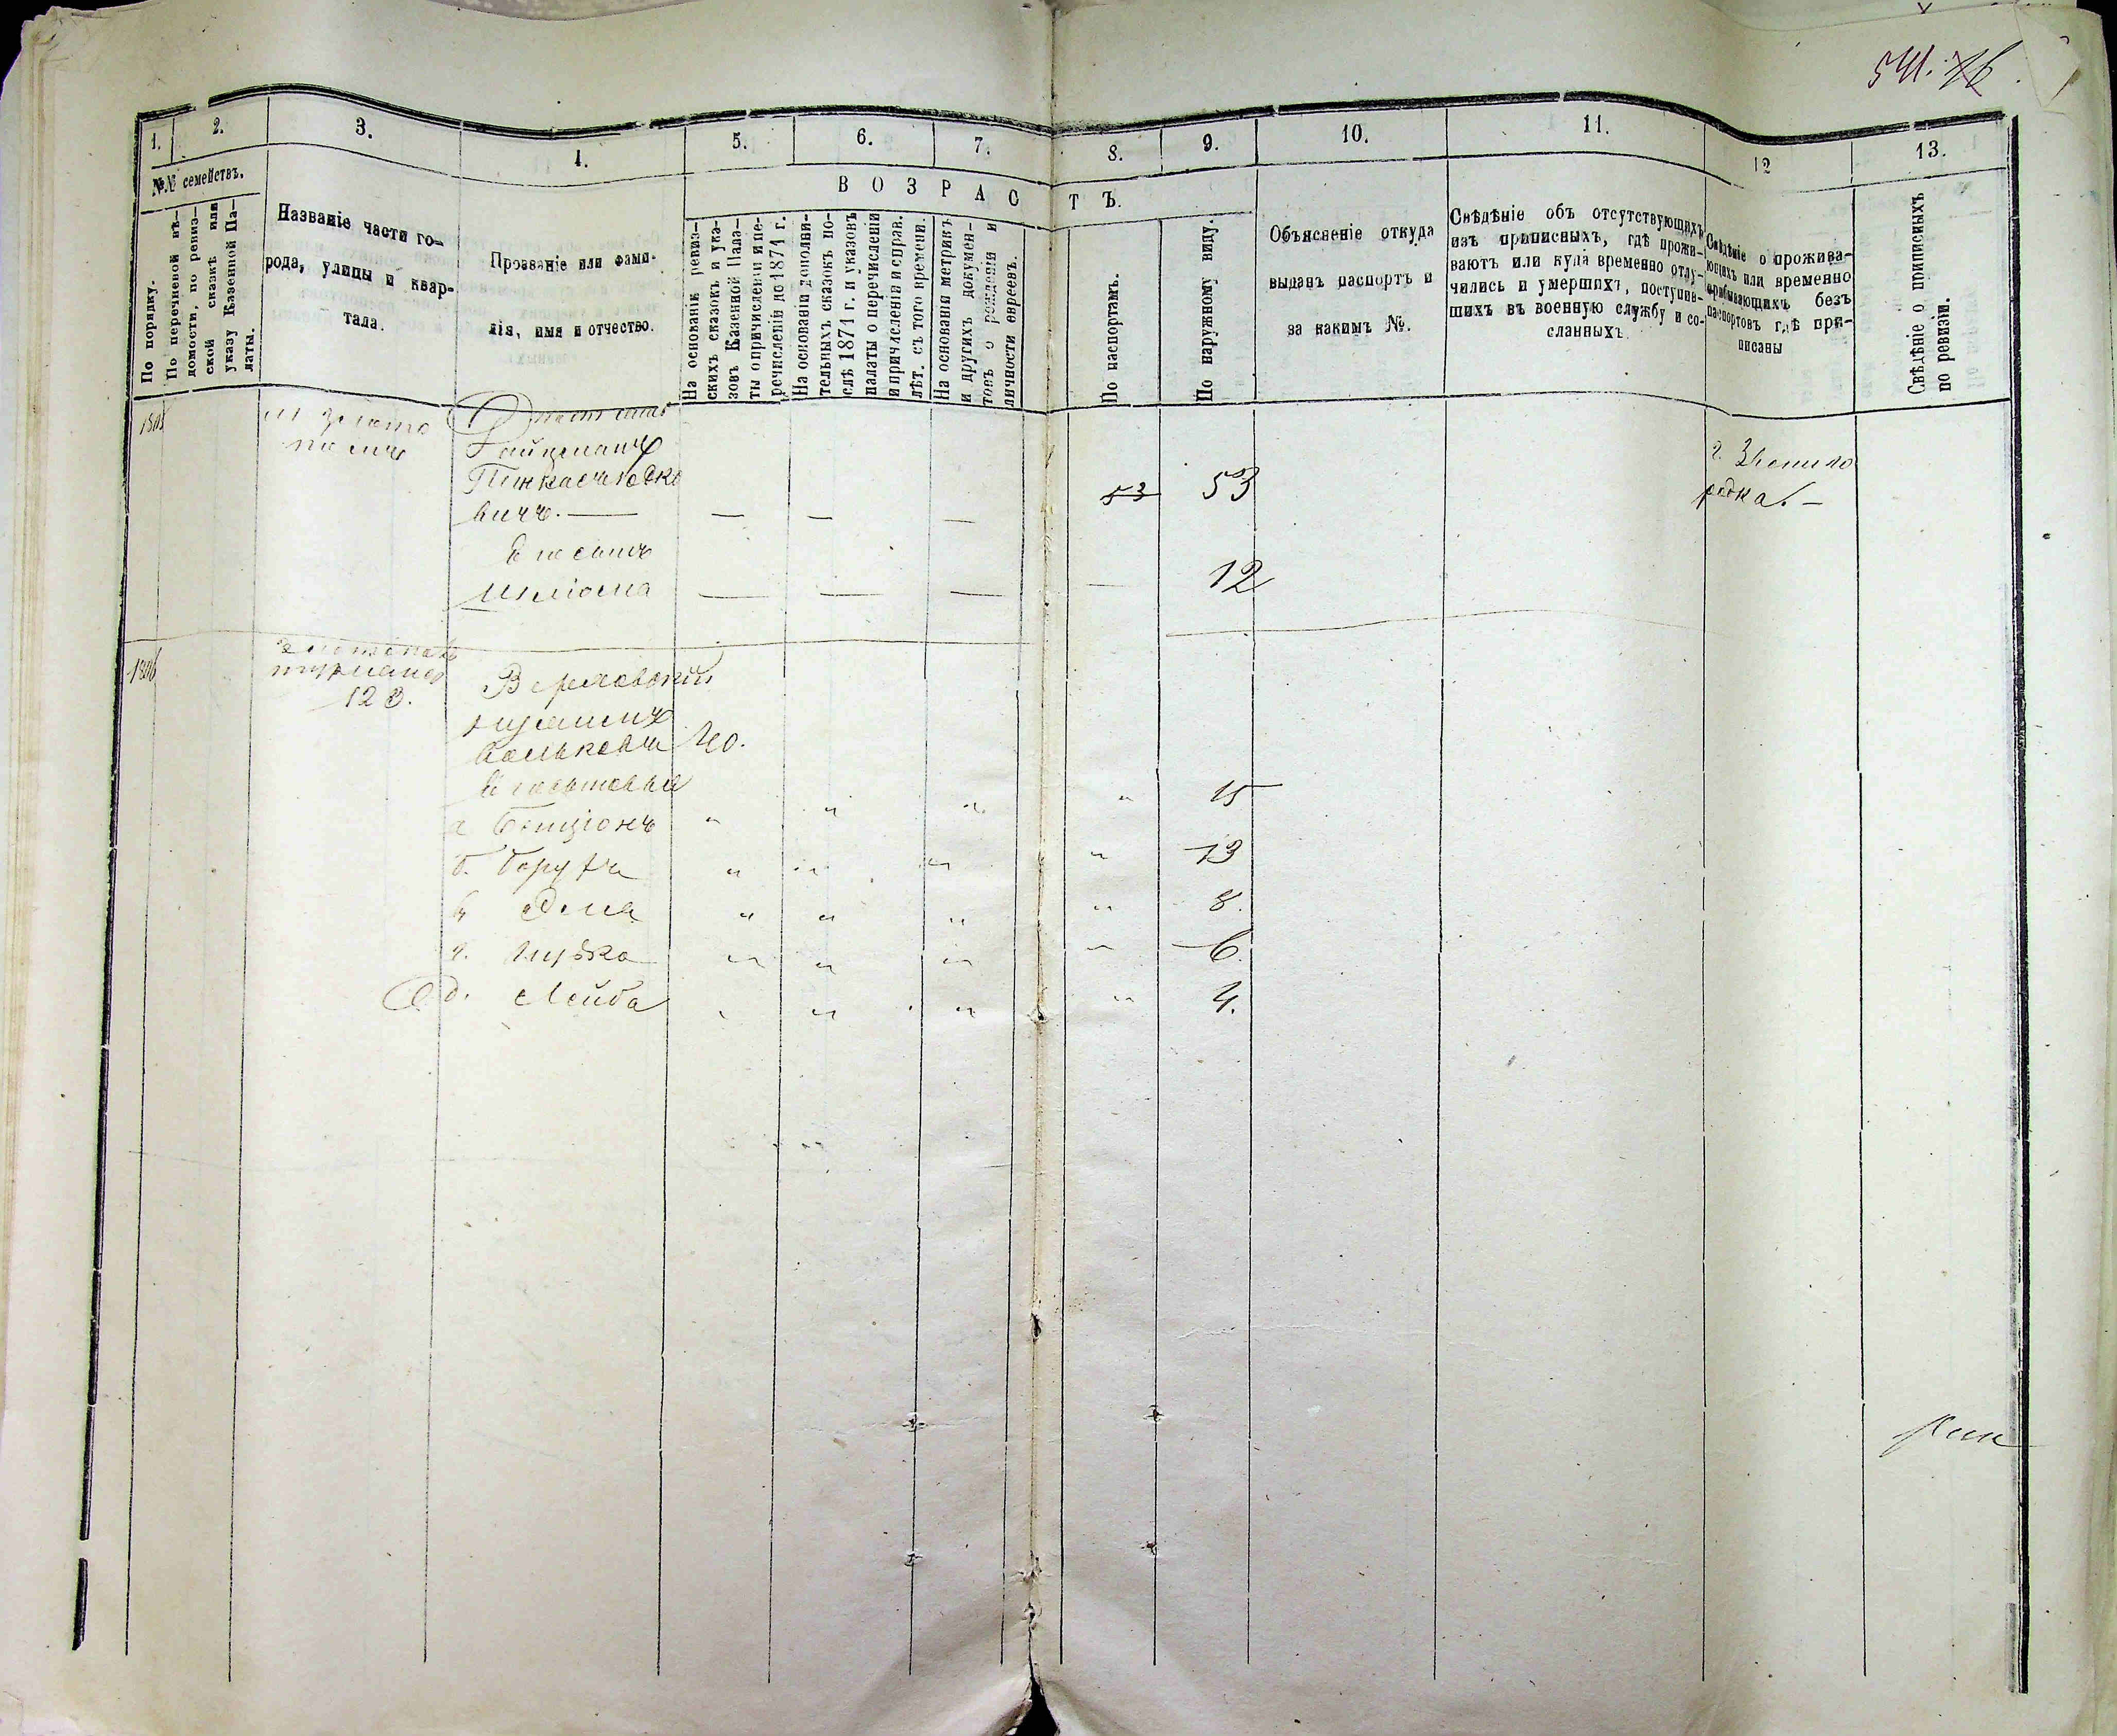 541. 16.
1. 2. 3. 4. 5. 6. 7. 8. 9. 10. 11. 12 13.
№№ семействъ.
По порядку.
По перечневой вѣ-
домости, по ревиз-
ской сказкѣ или
указу Казенной Па-
латы.
Названіе части го-
рода, улицы и квар-
тала.
Прозваніе или фами-
лія, имя и отчество.
ВОЗРАСТЪ.
На основаніи ревиз-
скихъ сказокъ и ука-
зовъ Казенной Пала-
ты о причисленіи и пе-
речисленіи до 1871 г.
На основаніи дополни-
тельныхъ сказокъ по-
слѣ 1871 г. и указовъ
палаты о перечисленіи
и причисленіи и справ.
лѣт. съ того времени.
На основаніи метрикъ
и другихъ докумен-
товъ о рожденіи и
личности евреевъ.
По паспортамъ.
По наружному виду.
Объясненіе откуда
выданъ паспортъ и
за какимъ №.
Свѣдѣніе объ отсутствующихъ
изъ приписныхъ, гдѣ прожи-
ваютъ или куда временно отлу-
чились и умершихъ, поступив-
шихъ въ военную службу и со-
сланныхъ.
Свѣдѣніе о прожива-
ющихъ или временно
прибывающихъ безъ
паспортовъ гдѣ при-
писаны
Свѣдѣніе о приписныхъ
по ревизіи.
1805
Пинкасъ Юдко
вичъ. — — — — 53 53
г. Звенило
родка. —
Его сынъ
Шліома — — — — 12
1806
123.
Верховскій
Вольковъ 40.
Его сыновья
а Бенціонъ " " " " 15
б. Борухъ " " " " 13
в " " " " 8.
г. " " " " 6.
д. Лейба " " " " 4.